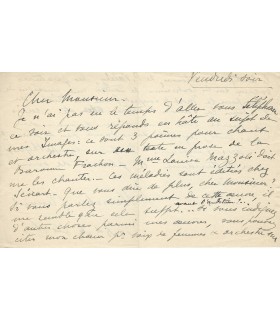 Vendredi soir
Cher Monsieur -
Je n'ai pas eu le temps d'aller vous téléphoner
ce soir et vous réponds en hâte au sujet de
mes Images : ce sont 3 poèmes pour chant
et orchestre sur texte en prose de la
Baronne - Mme Louise doit
me les chanter - Ces mélodies sont éditées chez
Sénart. Que vous dire de plus, cher Monsieur,
si vous parlez simplement de cette œuvre, il
me semble que cela suffit... Si vous indiquez
avant l'audition
d'autres choses parmi mes œuvres, vous pouvez
citer mon chœur pr voix de femmes et orchestre sur